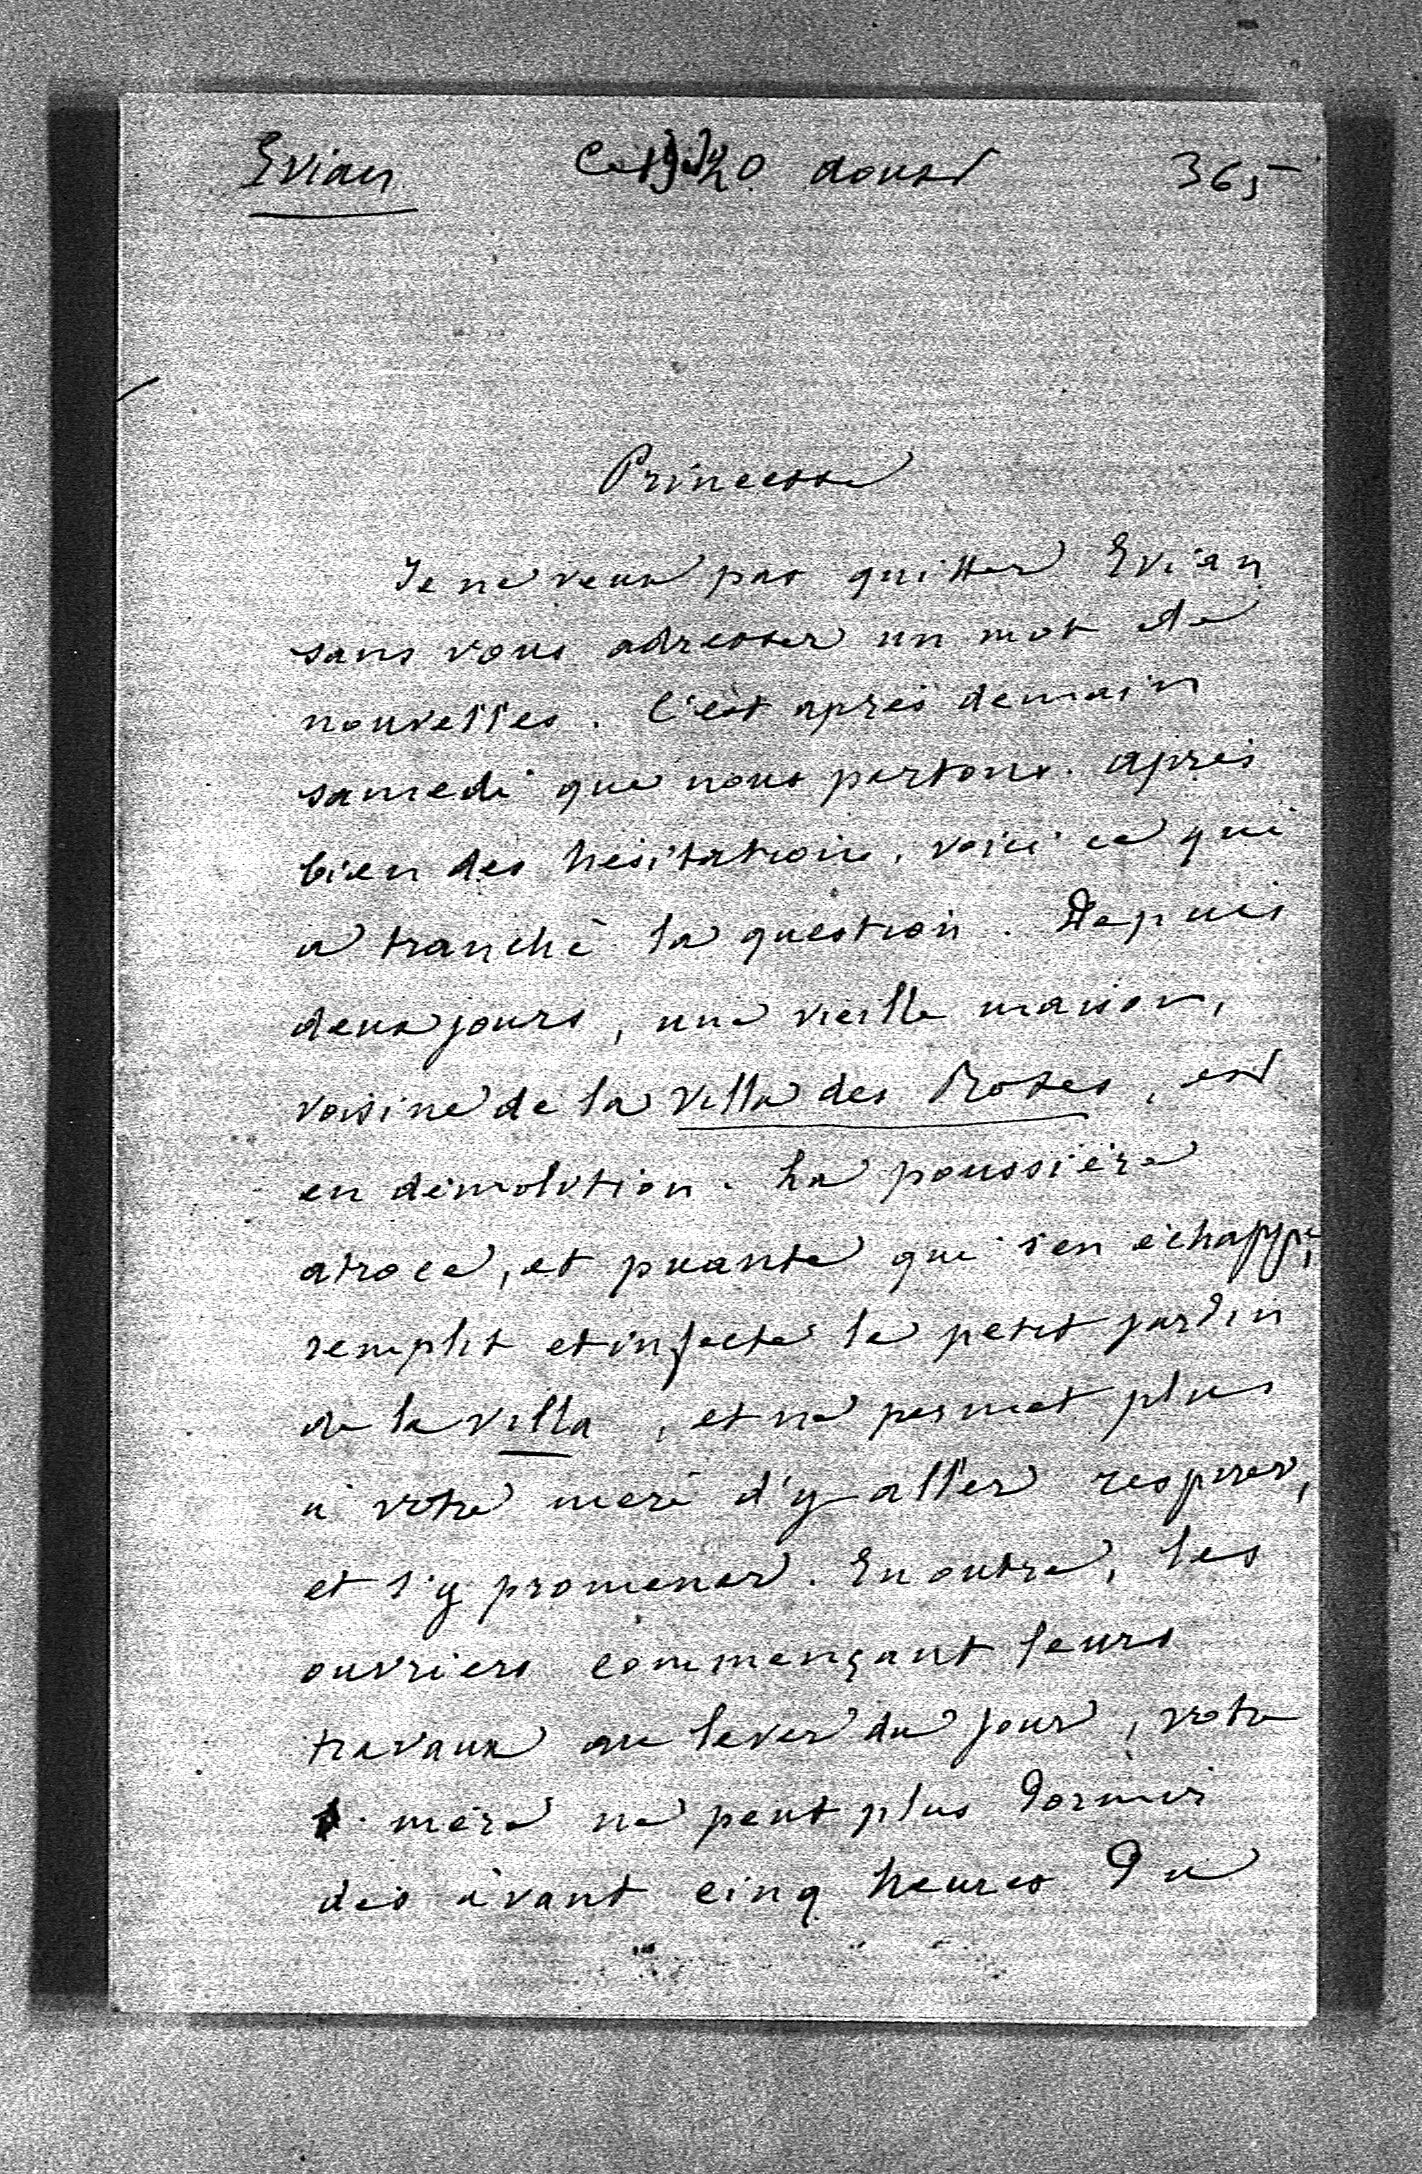 Evian Ce 20 aoust 365
Princesse
Je ne veux pas quitter Evian
sans vous adresser un mot de
nouvelles. C'est après demain
samedi que nous partons. après
bien des hésitations, voici ce qui
a tranché la question. Depuis
deux jours, une vieille maison,
voisine de la Villa des Roses, est
en démolition. La poussière
atroce, et puante qui s'en échappe,
remplit et infecte le petit jardin
de la villa, et ne permet plus
à votre mère d'y aller respirer,
et s'y promener. En outre, les
ouvriers commençant leurs
travaux au lever du jour, votre
mère ne peut plus dormir
dès avant cinq heures du